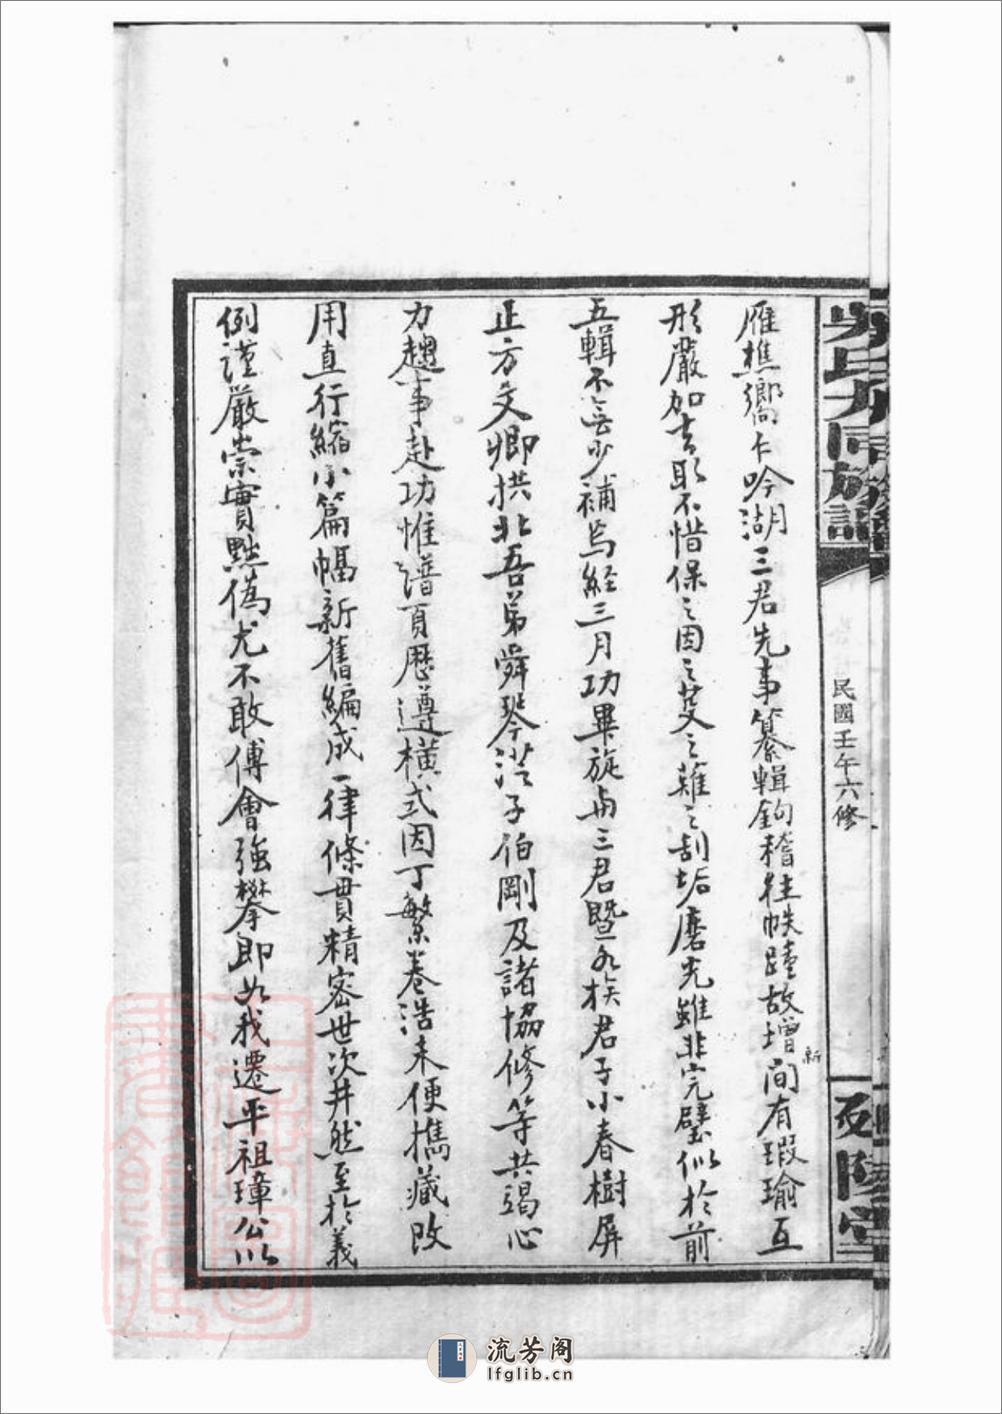 雁樵嚮卜吟湖三君先事纂輯鉤稽往帙踵故增新間有瑕瑜互
形嚴加去取不惜保之因之芟之薙之刮垢磨光雖非完璧似於前
五輯不無少補焉經三月功畢旋与三君暨九族君子小春樹屏
正方文卿拱北吾弟舜琴澄子伯剛及諸協修等共竭心
力趨事赴功惟譜頁歷遵橫式因丁繁卷浩未便携藏改
用直行縮小篇幅新舊編成一律條貫精密世次井然至於義
例謹嚴崇實黜偽尤不敢傅會強攀即如我遷平祖璋公以
民國壬午六修